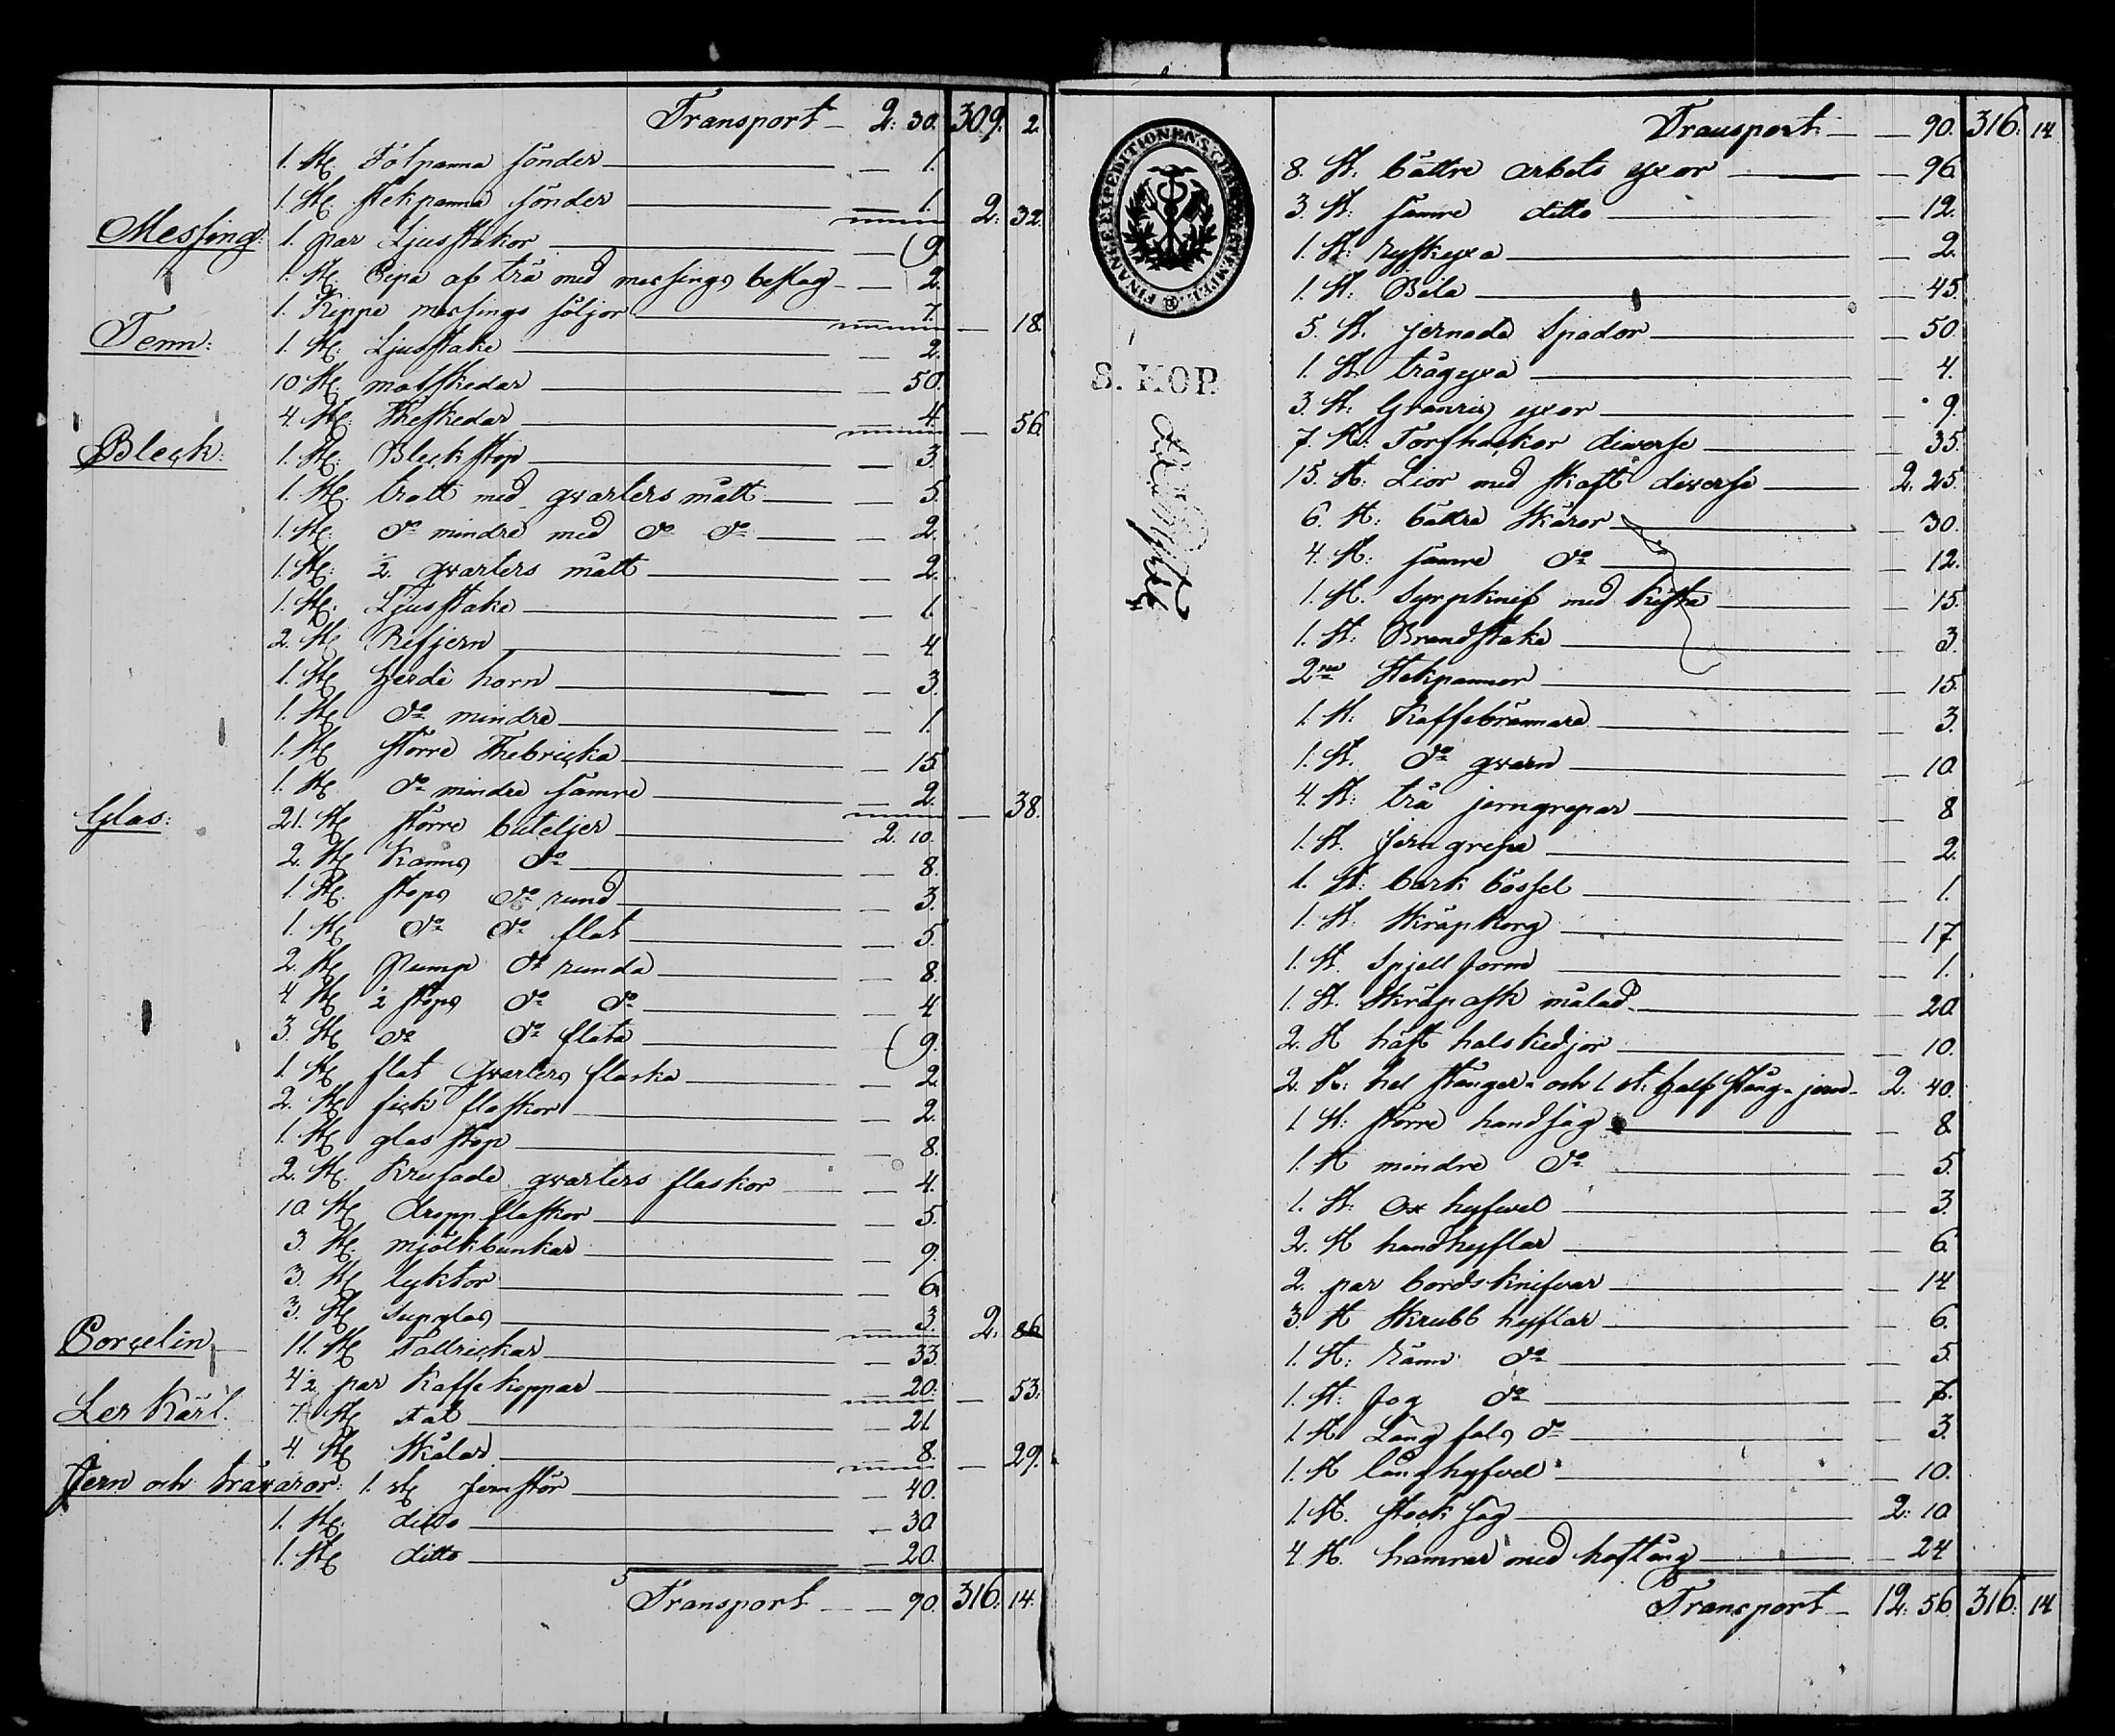 Transport — 2: 30. 309. 2.
1. St. Fotpanna sönder — 1.
1. St. stekpanna sönder — 1. 2: 32.
Messing: 1. par Ljusstakor — 9.
1. St. Pipa af trä med messings beslag — 2.
1. Kippa messings söljor — 7. — 18.
Tenn: 1. St. Ljusstake — 2.
10 St. matskedar — 50.
4. St. Theskedar — 4. — 56.
Bleck: 1. St. Bleckstop — 3.
1. St. tratt med qvarters mått — 5.
1. St. do mindre med do do — 2.
1. St. 2. qvarters mått — 2.
1. St. Ljusstake — 1.
2. St. Refjern — 4
1. St. Herde horn — 3.
1. St. do mindre — 1.
1. St. större Thebricka — 15
1. St. do mindre sämre — 2. — 38.
Glas: 21. St. större buteljer — 2. 10.
2. St. Kanns do — 8.
1. St. stops do rund — 3.
1. St. do do flat — 5.
2. St. Pump do runda — 8.
4. St. ½ stops do do — 4
3. St. do do flata — 9.
1. St. flat Qvarters flaska — 2
2. St. fick flaskor — 2.
1. St. glas stop — 8.
2. St. Krusade qvarters flaskor — 4.
10 St. droppflaskor — 5.
3. St. mjölkbunkar — 9.
3. St. lyktor — 6
3. St. supglas — 3. 2: 86.
Porcelin 11. St. Tallrickar — 33.
4½ par Kaffekoppar — 20. — 53.
Ler Kärl. 7. St. Fat — 21
4. St. Skålar — 8. — 29.
Jern och träwaror: 1. st. Jernstör — 40.
1. St. ditto — 30
1. St. ditto — 20.
Transport — 90. 316: 14.
FINANCE EXPEDITIONENS CHARTÆ STEMPEL
8. KOP.
Transport — 90. 316: 14
8. St. bättre arbets yxor — 96
3. St. sämre ditto — 12.
1. St. ryskyxa — 2.
1. St. Bila — 45.
5. St. jernade Spador — 50.
1. St. trågyxa — 4.
3. St. Granris yxor — 9.
7. St. Torfhackor diverse — 35.
15. St. Lior med skaft diverse — 2. 25.
6. St. bättre Skäror — 30.
4. St. sämre do — 12.
1. St. Syrpknif med kista — 15.
1. St. Brandstake — 3.
2ne Stekpannor — 15.
1. St. Kaffebrännare — 3.
1. St. do qvarn — 10.
4. St. trä jerngrepar — 8
1. St. Jerngrepe — 2.
1. St. bark bössel — 1.
1. St. Skräpkorg — 17
1. St. Spjell form — 1.
1. St. Skräpask målad — 20
2. St. häst halskedjor — 10.
2. St. hel stänger och 1 st: half stång jern — 2. 40.
1 St. större handsåg — 8
1. St. mindre do — 5.
1. St. Ox hyfwel — 3.
2. St. handhyflar — 6.
2. par bordsknifvar — 14
3. St. Skrubb hyflar — 6.
1. St. Ränn do — 5.
1. St. Fog do — 7.
1. St. Lång fals do — 3.
1. St. långhyfvel — 10.
1. St. stock såg — 2: 10.
4 St. hamrar med hoftång — 24
Transport — 12: 56 316: 14